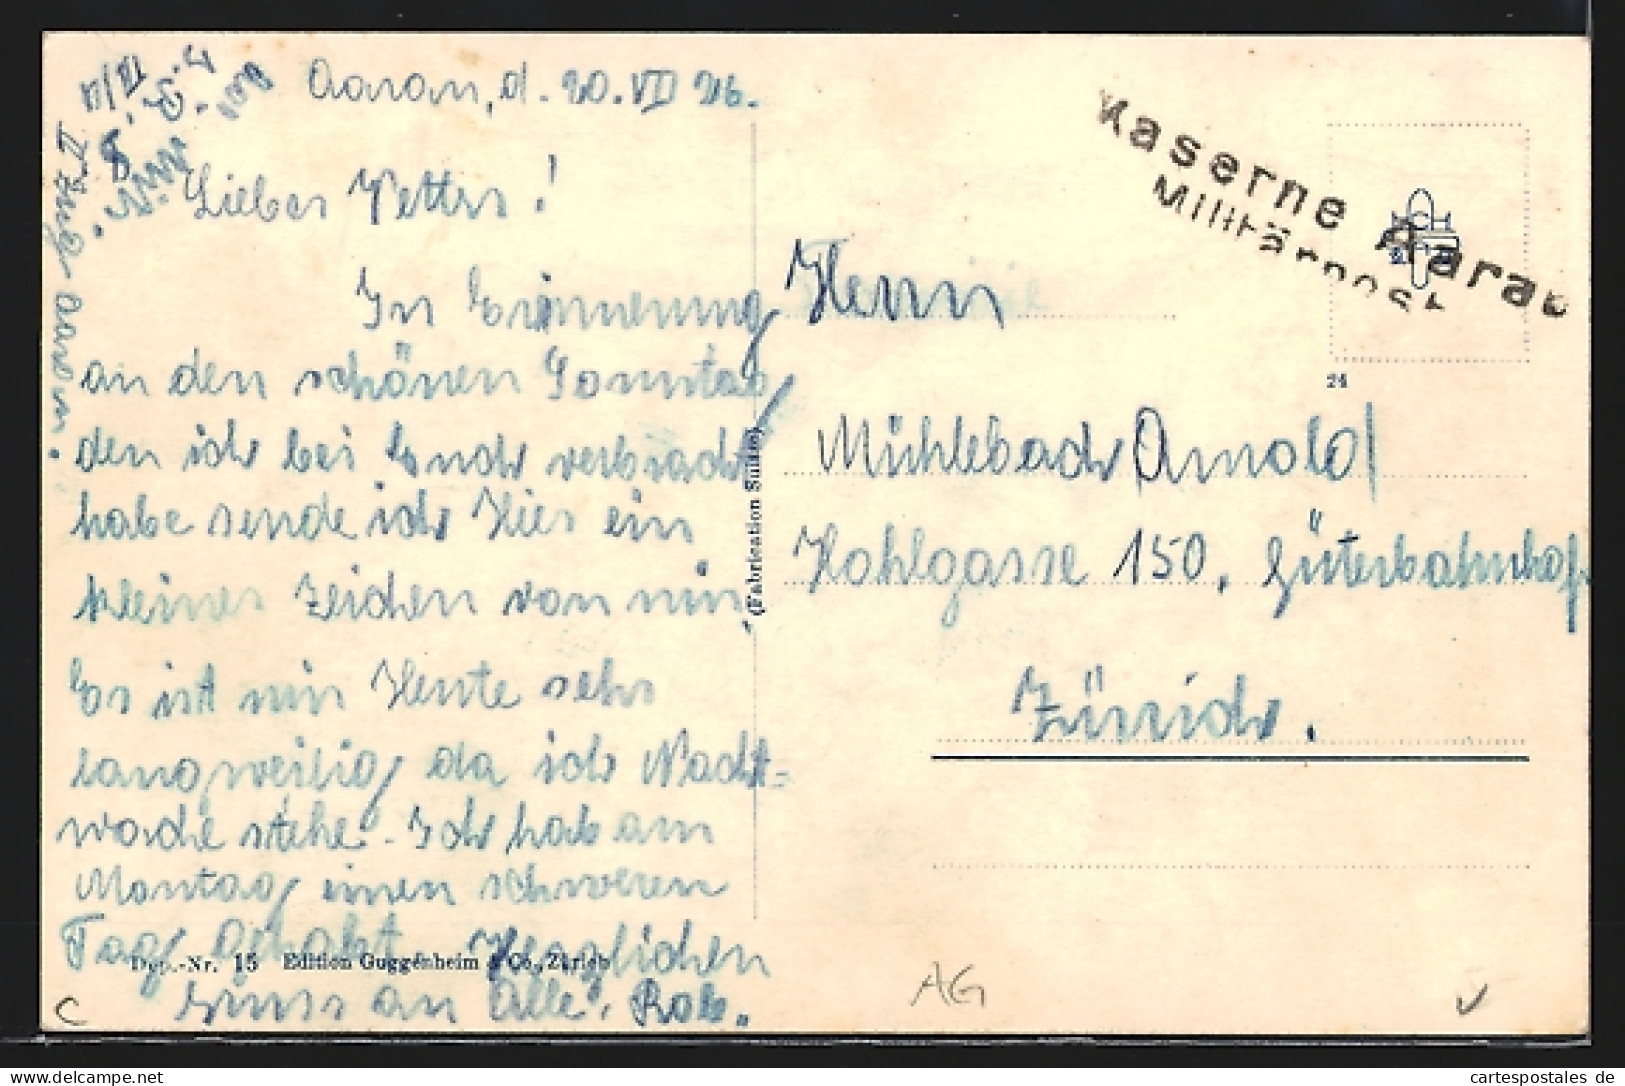 Aarau, d. 20. VII 26.
Lieber Vetter!
In Erinnerung
an den schönen Sonntag
den ich bei Euch verbracht
habe sende ich Hier ein
kleines Zeichen von mir.
Es ist mir Heute sehr
langweilig da ich Nacht-
wache stehe. Ich hab am
Montag einen schweren
Tag gehabt. Herzlichen
Gruss an Alle, Rob.
II Zug Aarau.
Kaserne Aarau
Militärpost
24
Herrn
Mühlebach Arnold
Kohlgasse 150, Güterbahnhof
Zürich.
(Fabrication Suisse)
Dep.-Nr. 15 Edition Guggenheim & Co., Zürich
AG
C
delcampe.net
cartespostales de